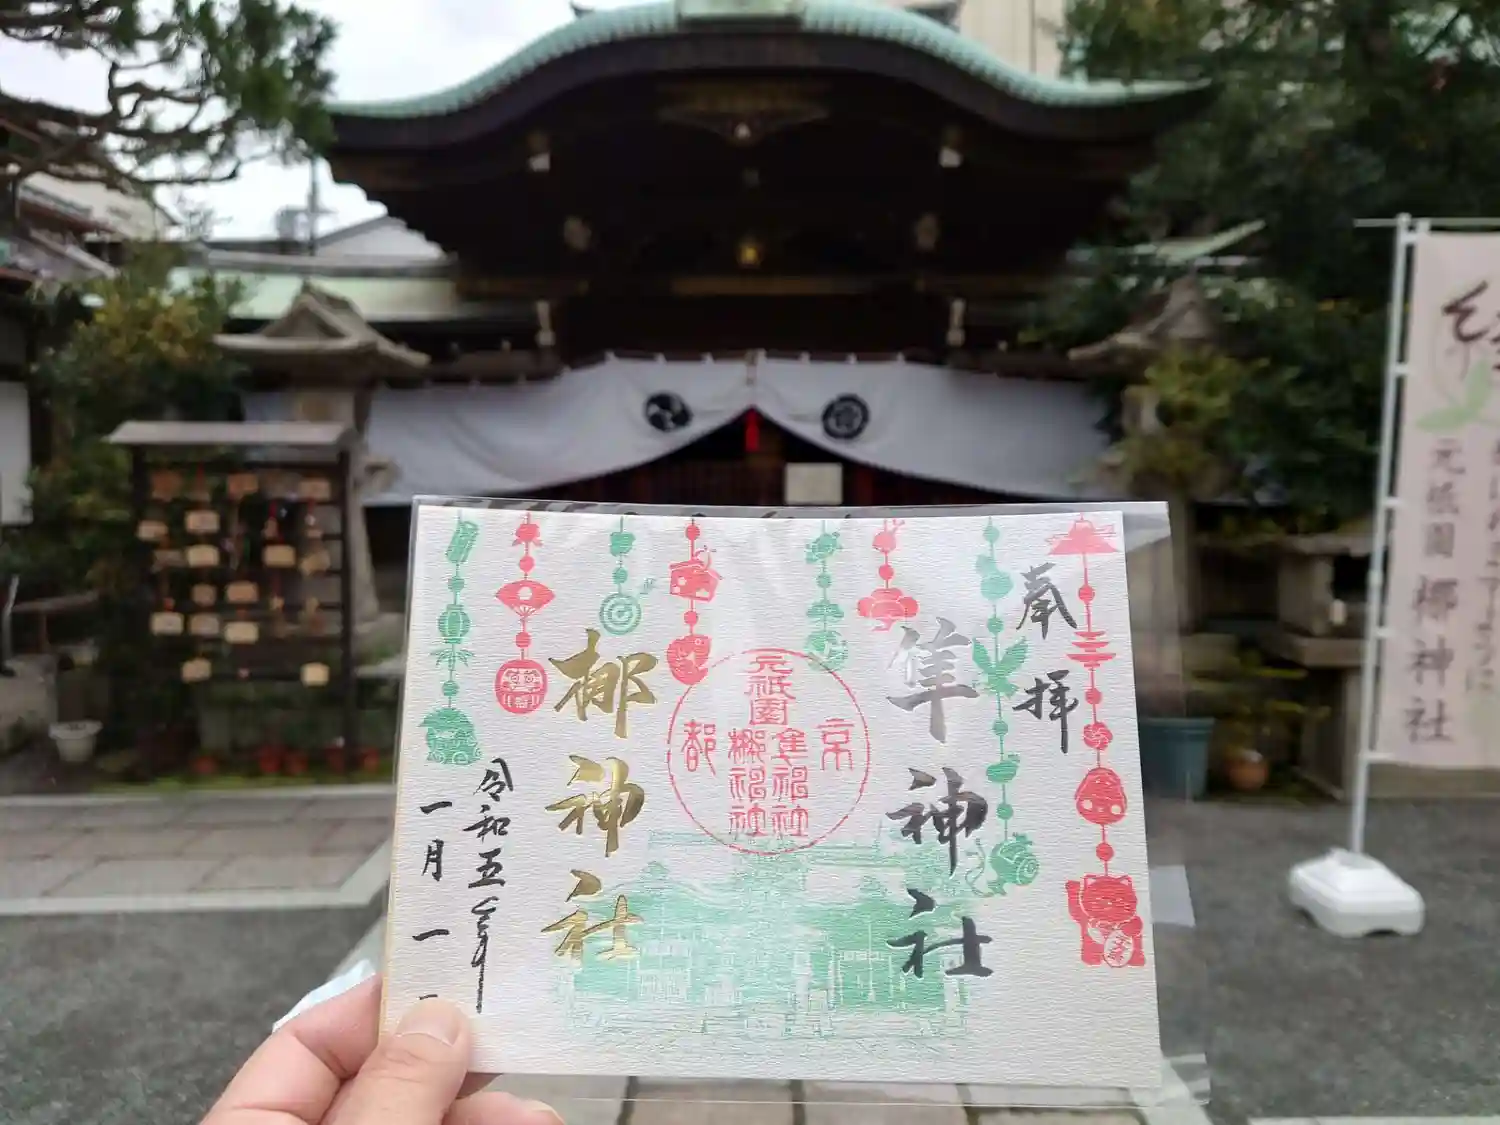 奉拝
隼神社
元祇園
京都
隼神社
梛神社
梛神社
令和五年
一月一
元祇園 梛神社